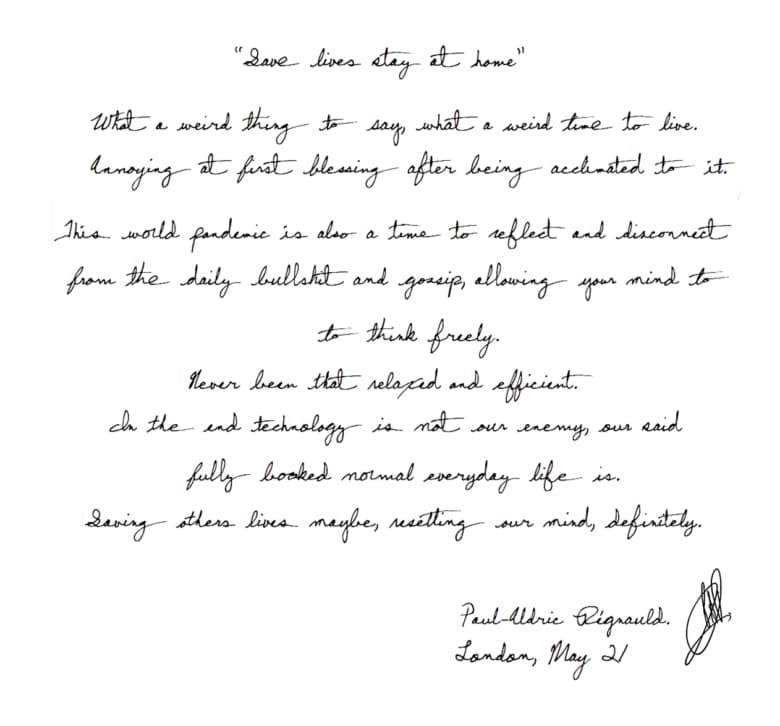 "Save lives stay at home"
What a weird thing to say, what a weird time to live.
Annoying at first blessing after being acclimated to it.
This world pandemic is also a time to reflect and disconnect
from the daily bullshit and gossip, allowing your mind to
to think freely.
Never been that relaxed and efficient.
In the end technology is not our enemy, our said
fully booked normal everyday life is.
Saving others lives maybe, resetting our mind, definitely.
Paul-Aldric Régnauld.
London, May 21